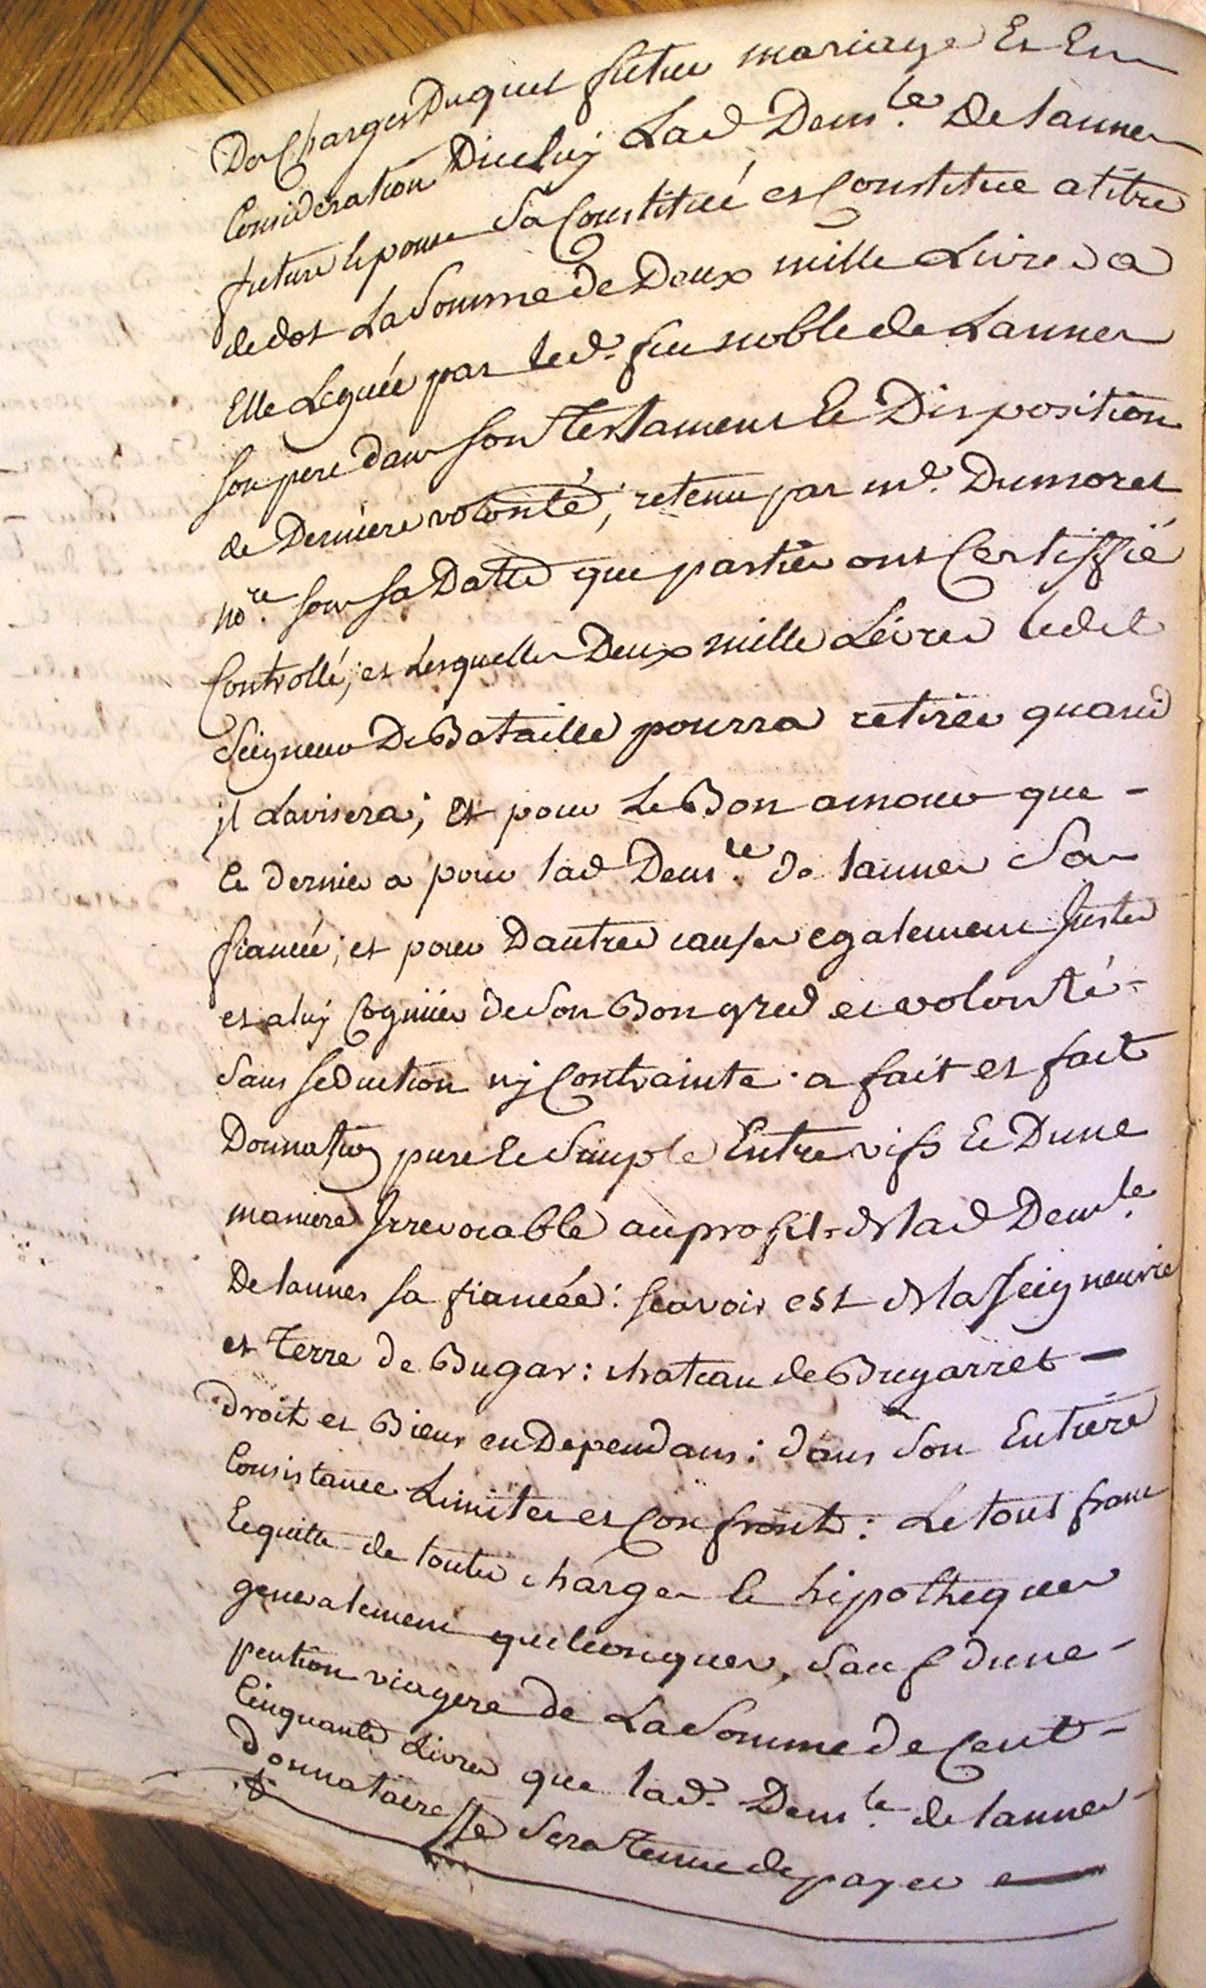 Des Charges Duquel futeur mariage Et En
Consideration Dicelluy Lad Dem.le De Lannes
future Epouse Sa Constitué et Constitue a titre
de dot La Somme de Deux mille Livres a
Elle Leguée par led. feu noble de Lannes
son pere dans son Testament Et Disposition
de Derniere volonté, retenu par m.e Dumoret
no.re sous sa Datte que parties ont Certiffié
Controllé; et Lesquelles Deux mille Livres ledit
Seigneur De Bataille pourra retirer quand
jl Lavisera; Et pour Le Bon amour que -
Ce dernier a pour lad Dem.le de Lannes Sa
fiancée; et pour Dautres causes egalement Justes
et a luy Cogniies de Son Bon gred et volonté -
Sans Seduction ny Contrainte a fait et fait
Donnation pure Et Simple Entre vifs Et Dune
maniere Irrevocable au profit de lad Dem.le
De Lannes sa fiancéé: scavoir est de la seigneurie
et Terre de Bugar: chateau de Bugarret -
Droit et Biens en Dependans: dans Son Entiere
Consistance Limites et Confronts: Le tout franc
Et quitte de toutes charges Et hipotheques
generalement quelconques, Sauf dune -
pention viagere de La Somme de Cent -
Cinquante Livres que lad. Dem.le de Lannes
Donnataire Sera Tenue de payer